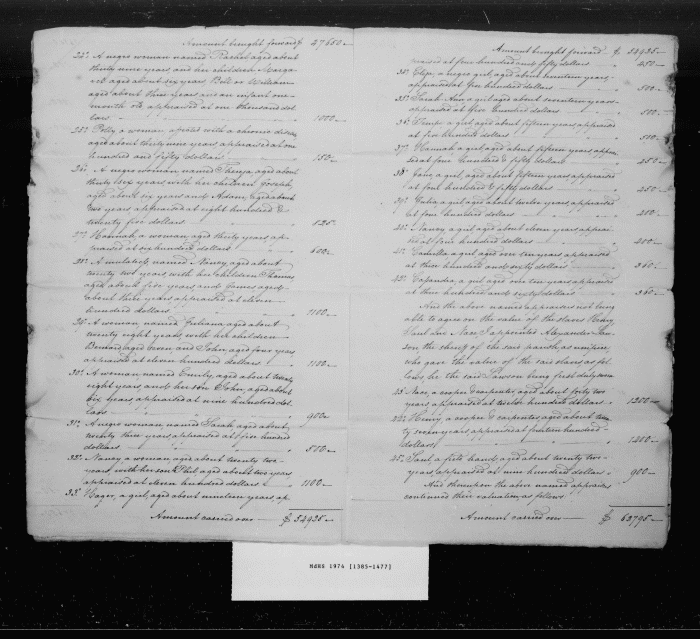 Amount brought forward $ 27650
24. A negro woman named Rachel aged about
thirty nine years and her children Marga
ret aged about six years, Bill or William
aged about three years and an infant one
month old appraised at one thousand dol
lars 1000
25. Polly a woman affected with a chronic disease
aged about thirty nine years appraised at one
hundred and fifty dollars 150
26. A negro woman named Theresa, aged about
thirty six years with her children Joseph,
aged about six years and Adam, aged about
two years appraised at eight hundred &
twenty five dollars 825
27. Hannah, a woman aged thirty years ap
praised at six hundred dollars 600
28. A mulatress named Nancy aged about
twenty two years with her children Thomas
aged about five years and James aged
about three years appraised at eleven
hundred dollars 1100
29. A woman named Juliana aged about
twenty eight years, with her children
Bernard aged seven and John aged four years
appraised at eleven hundred dollars 1100
30. A woman named Emily, aged about twenty
eight years and her son John, aged about
six years appraised at nine hundred dol
lars 900
31. A negro woman, named Sarah aged about
twenty three years appraised at five hundred
dollars 500
32. Nancy a woman aged about twenty two
years with her son Phil aged about two years
appraised at eleven hundred dollars 1100
33. Hager, a girl, aged about nineteen years ap
Amount carried over $ 34935
Amount brought forward $ 34935
praised at four hundred and fifty dollars 450
34. Eliza, a negro girl, aged about nineteen years
appraised at five hundred dollars 500
35. Sarah Ann a girl aged about seventeen years
appraised at five hundred dollars 500
36. a girl aged about fifteen years appraised
at five hundred dollars 500
37. Hannah a girl, aged about fifteen years apprai
sed at four hundred & fifty dollars 450
38. Jane a girl, aged about fifteen years appraised
at four hundred & fifty dollars 450
39. a girl aged about twelve years, appraised
at four hundred dollars 400
40. Nancy a girl aged about eleven years aprai
sed at four hundred dollars 400
41. Camilla a girl aged over ten years appraised
at three hundred and sixty dollars 360
42. a girl, aged about ten years, appraised
at three hundred and sixty dollars 360
And the above named appraisers not being
able to agree on the value of the slaves Henry
Paul and Nace I appointed Alexander
son the sheriff of the said parish, as umpire,
who gave the value of the said slaves as fol
lows, he the said being first duly sworn
43. Nace, a cooper & carpenter, aged about forty two
years, appraised at twelve hundred dollars 1200
44. Henry, a cooper & carpenter aged about twen
ty seven years appraised at fourteen hundred
dollars
45. Paul a field hand, aged about twenty two
years, appraised at nine hundred dollars 900
And thereupon the above named appraisers
continued their valuation as follows
Amount carried over $ 62795
MSHS 1976 [1385-1477]